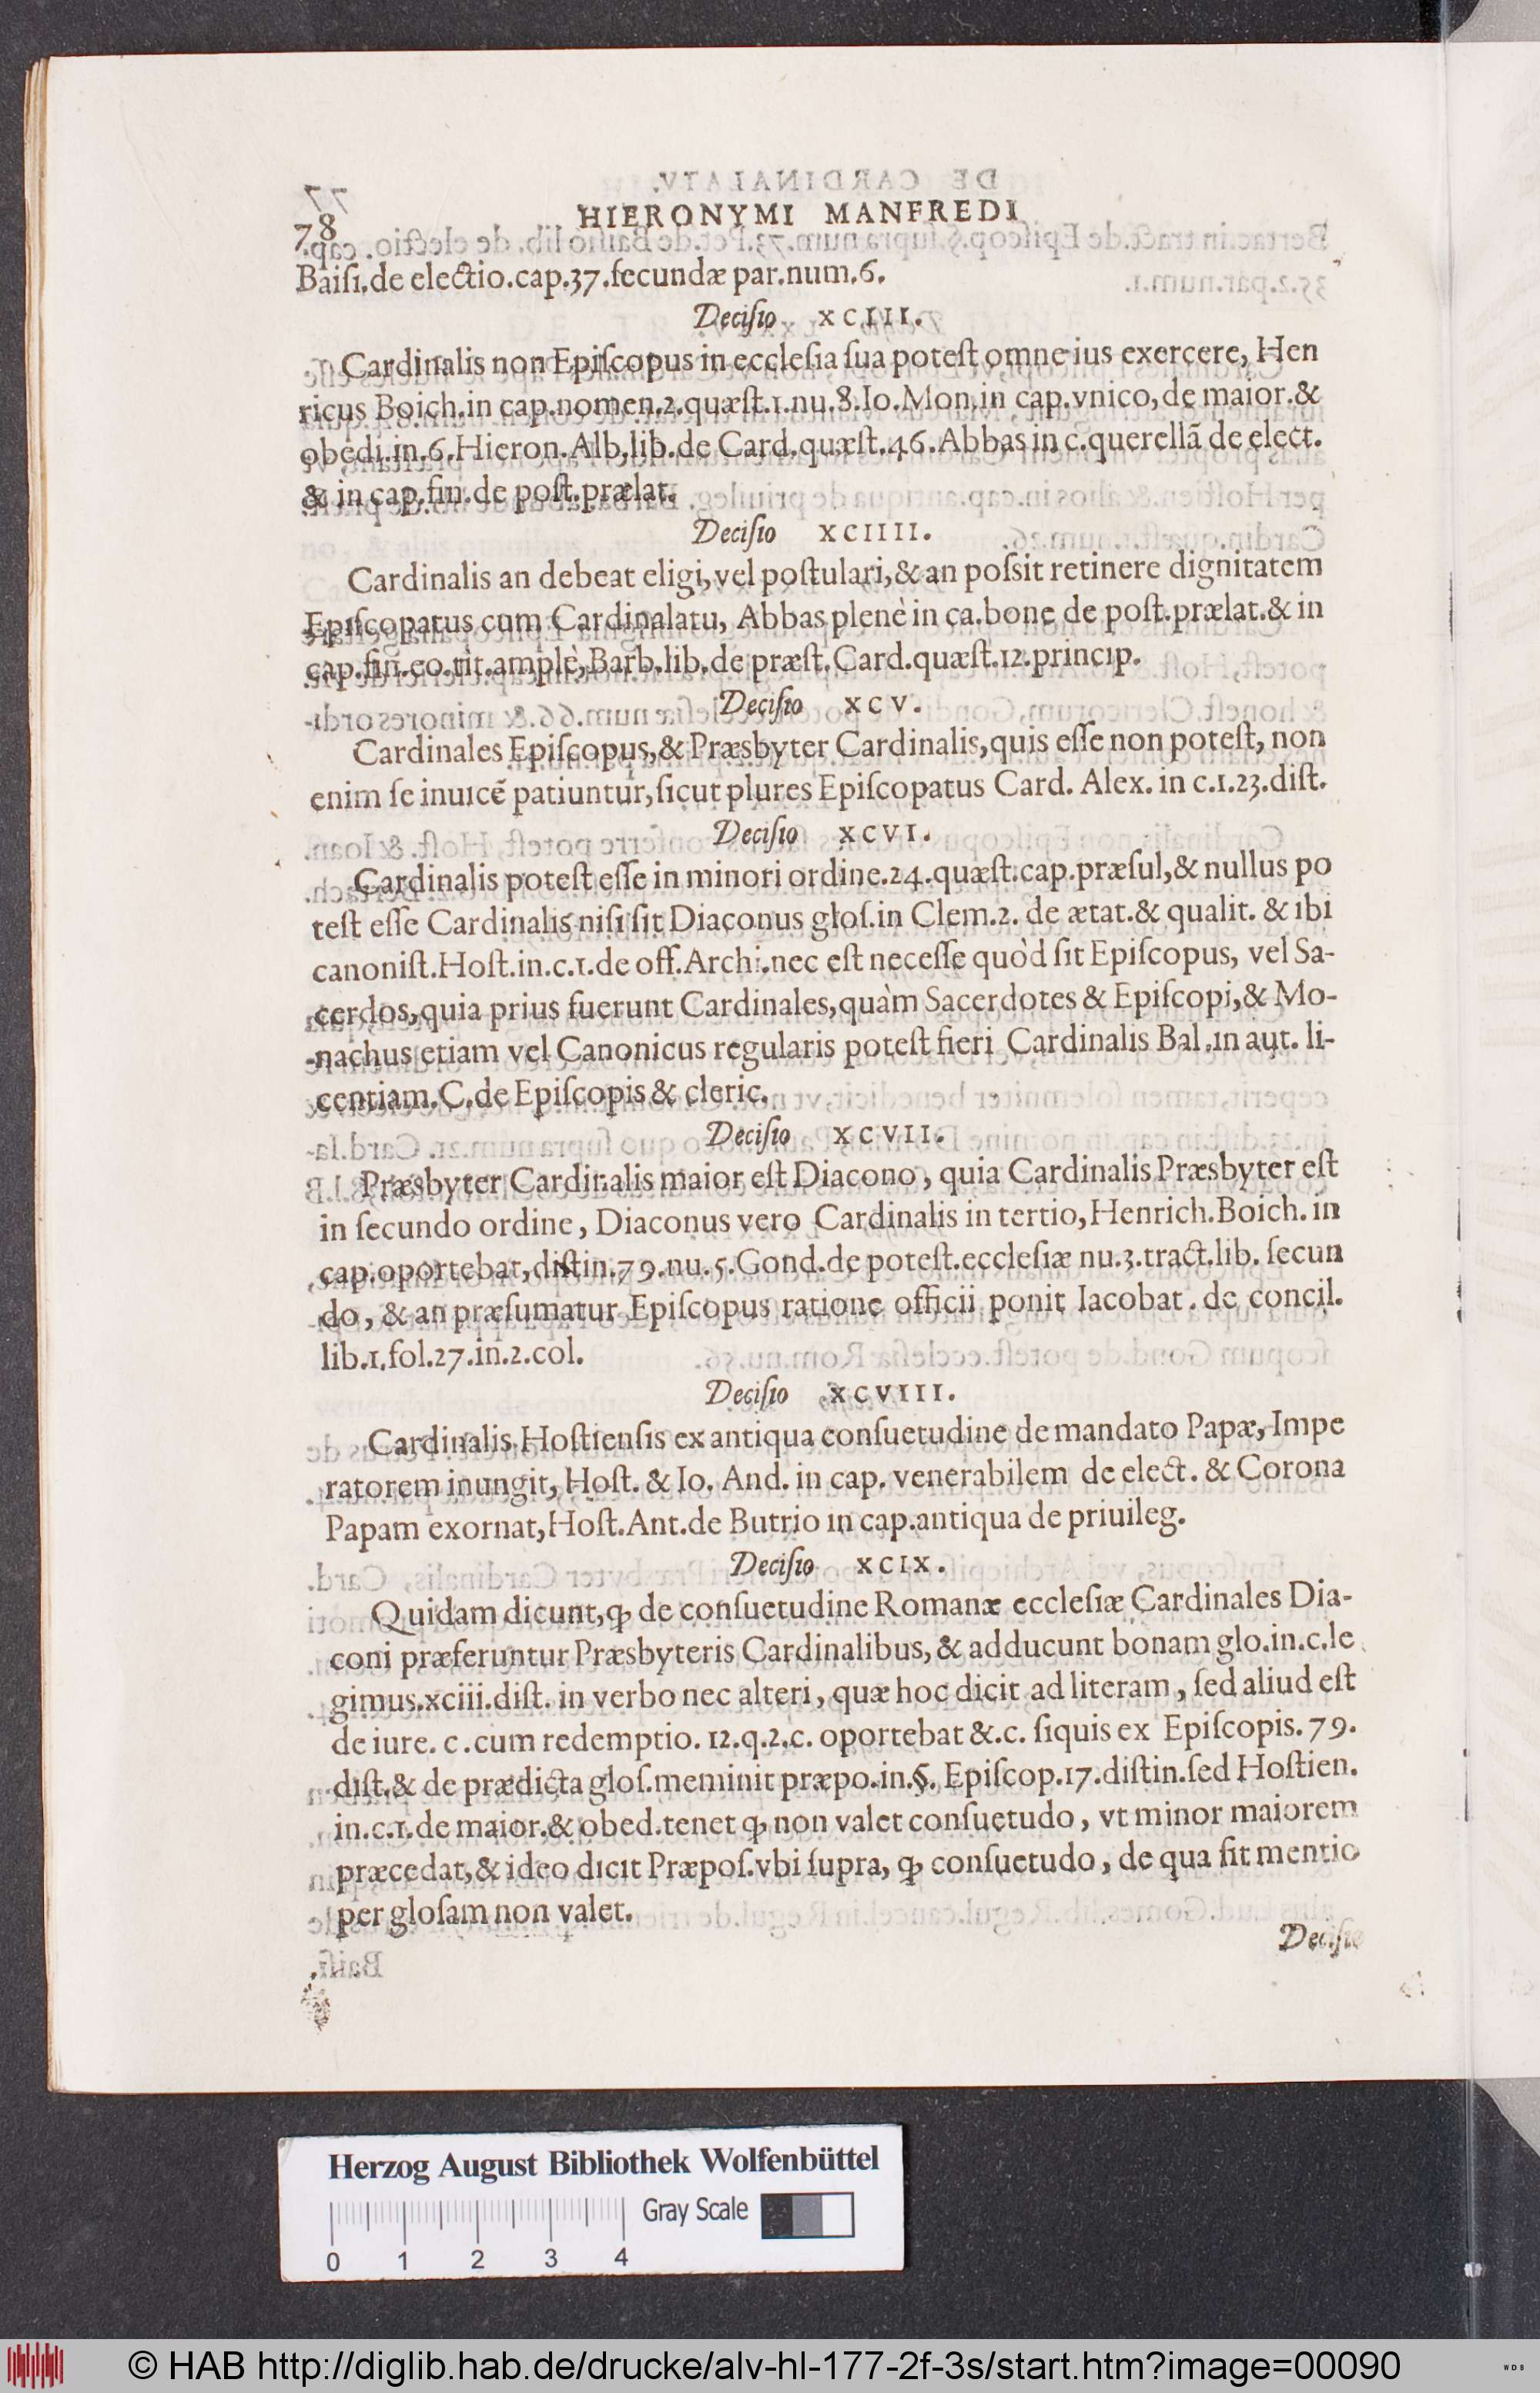 78
HIERONYMI MANFREDI
Baiſi.de electio.cap.37.ſecundæ par.num.6.
Deciſio XCIII.
Cardinalis non Epiſcopus in eccleſia ſua poteſt omne ius exercere, Hen
ricus Boich.in cap.nomen.2.quæſt.1.nu.8.Io.Mon.in cap.vnico,de maior.&
obedi.in.6.Hieron.Alb.lib.de Card.quæſt.46.Abbas in c.querellã de elect.
& in cap.fin.de poſt.prælat.
Deciſio XCIIII.
Cardinalis an debeat eligi,vel poſtulari,& an poſsit retinere dignitatem
Epiſcopatus cum Cardinalatu, Abbas plenè in ca.bone de poſt.prælat.& in
cap.fin.eo.tit.amplè,Barb.lib.de præſt.Card.quæſt.12.princip.
Deciſio XCV.
Cardinales Epiſcopus,& Præsbyter Cardinalis,quis eſſe non poteſt, non
enim ſe inuicẽ patiuntur,ſicut plures Epiſcopatus Card. Alex. in c.1.23.diſt.
Deciſio XCVI.
Cardinalis poteſt eſſe in minori ordine.24.quæſt.cap.præſul,& nullus po
teſt eſſe Cardinalis niſi ſit Diaconus gloſ.in Clem.2. de ætat.& qualit. & ibi
canoniſt.Hoſt.in.c.1.de off.Archi.nec eſt neceſſe quòd ſit Epiſcopus, vel Sa-
cerdos,quia prius fuerunt Cardinales,quàm Sacerdotes & Epiſcopi,& Mo-
nachus etiam vel Canonicus regularis poteſt fieri Cardinalis Bal.in aut. li-
centiam.C.de Epiſcopis & cleric.
Deciſio XCVII.
Præsbyter Cardinalis maior eſt Diacono, quia Cardinalis Præsbyter eſt
in ſecundo ordine, Diaconus vero Cardinalis in tertio,Henrich.Boich. in
cap.oportebat,diſtin.79.nu.5.Gond.de poteſt.eccleſiæ nu.3.tract.lib. ſecun
do, & an præſumatur Epiſcopus ratione officii ponit Iacobat. de concil.
lib.1.fol.27.in.2.col.
Deciſio XCVIII.
Cardinalis Hoſtienſis ex antiqua conſuetudine de mandato Papæ, Impe
ratorem inungit, Hoſt. & Io. And. in cap. venerabilem de elect. & Corona
Papam exornat,Hoſt.Ant.de Butrio in cap.antiqua de priuileg.
Deciſio XCIX.
Quidam dicunt,ꝙ de conſuetudine Romanæ eccleſiæ Cardinales Dia-
coni præferuntur Præsbyteris Cardinalibus, & adducunt bonam glo.in.c.le
gimus.xciii.diſt. in verbo nec alteri, quæ hoc dicit ad literam, ſed aliud eſt
de iure. c.cum redemptio. 12.q.2.c. oportebat &.c. ſiquis ex Epiſcopis. 79.
diſt.& de prædicta gloſ.meminit præpo.in.§. Epiſcop.17.diſtin.ſed Hoſtien.
in.c.1.de maior.& obed.tenet ꝙ non valet conſuetudo, vt minor maiorem
præcedat,& ideo dicit Præpoſ.vbi ſupra, ꝙ conſuetudo, de qua fit mentio
per gloſam non valet.
Deciſio
Herzog August Bibliothek Wolfenbüttel
Gray Scale
0 1 2 3 4
© HAB http://diglib.hab.de/drucke/alv-hl-177-2f-3s/start.htm?image=00090